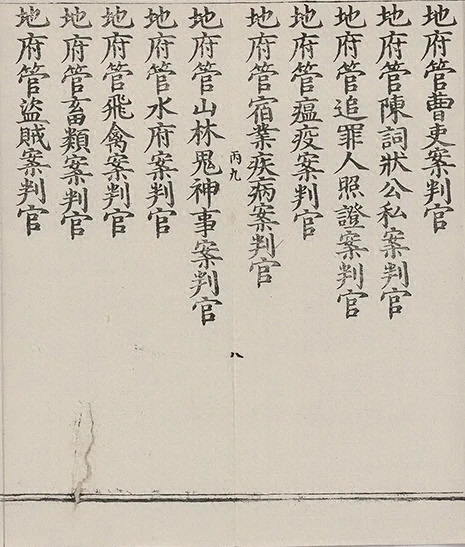 地府管曹吏案判官
地府管陳詞狀公私案判官
地府管追罪人照證案判官
地府管瘟疫案判官
地府管宿業疾病案判官
丙九
八
地府管山林鬼神事案判官
地府管水府案判官
地府管飛禽案判官
地府管畜類案判官
地府管盜賊案判官